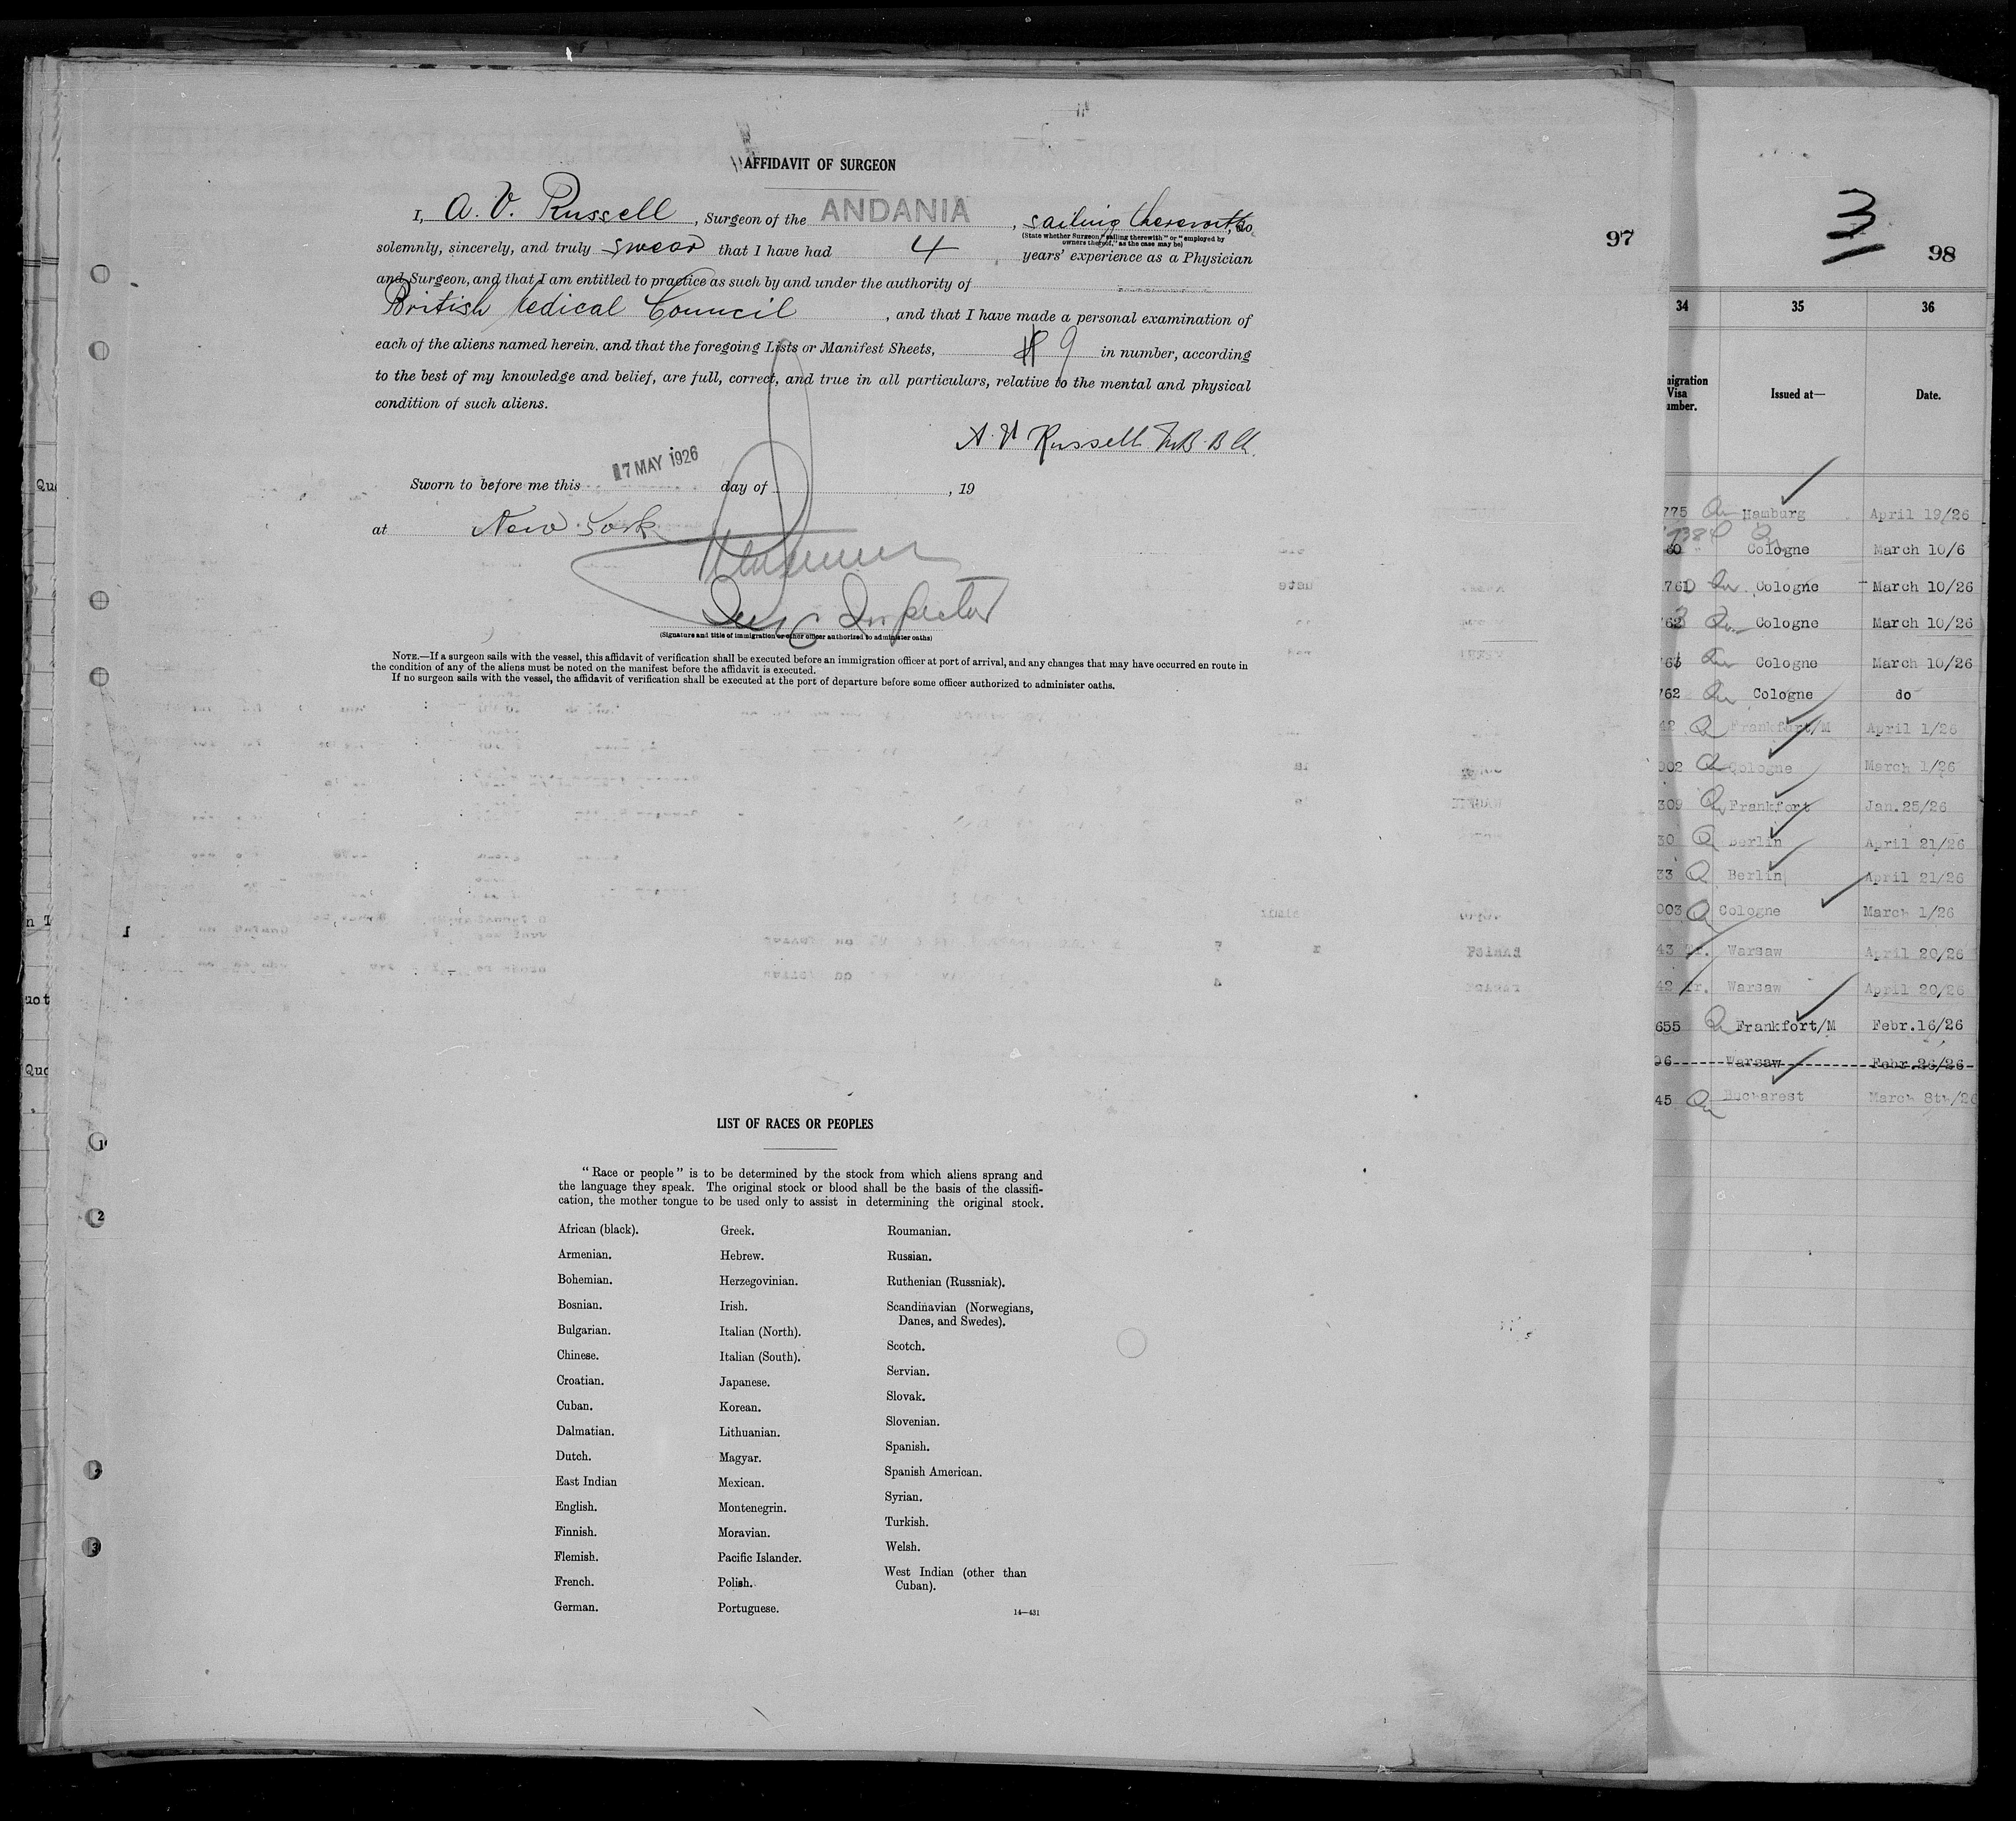 AFFIDAVIT OF SURGEON
I, A. V. Russell, Surgeon of the ANDANIA, sailing therewith, do
(State whether Surgeon "sailing therewith" or "employed by
owners thereof," as the case may be)
solemnly, sincerely, and truly swear that I have had 4 years' experience as a Physician
and Surgeon, and that I am entitled to practice as such by and under the authority of
British Medical Council, and that I have made a personal examination of
each of the aliens named herein. and that the foregoing Lists or Manifest Sheets, 9 in number, according
to the best of my knowledge and belief, are full, correct, and true in all particulars, relative to the mental and physical
condition of such aliens.
A. V Russell M.B. B Ch.
Sworn to before me this 17 MAY 1926 day of , 19
at New York
Inspector
(Signature and title of immigration or other officer authorized to administer oaths)
NOTE.—If a surgeon sails with the vessel, this affidavit of verification shall be executed before an immigration officer at port of arrival, and any changes that may have occurred en route in
the condition of any of the aliens must be noted on the manifest before the affidavit is executed.
If no surgeon sails with the vessel, the affidavit of verification shall be executed at the port of departure before some officer authorized to administer oaths.
LIST OF RACES OR PEOPLES
"Race or people" is to be determined by the stock from which aliens sprang and
the language they speak. The original stock or blood shall be the basis of the classifi-
cation, the mother tongue to be used only to assist in determining the original stock.
African (black).
Armenian.
Bohemian.
Bosnian.
Bulgarian.
Chinese.
Croatian.
Cuban.
Dalmatian.
Dutch.
East Indian
English.
Finnish.
Flemish.
French.
German.
Greek.
Hebrew.
Herzegovinian.
Irish.
Italian (North).
Italian (South).
Japanese.
Korean.
Lithuanian.
Magyar.
Mexican.
Montenegrin.
Moravian.
Pacific Islander.
Polish.
Portuguese.
Roumanian.
Russian.
Ruthenian (Russniak).
Scandinavian (Norwegians,
Danes, and Swedes).
Scotch.
Servian.
Slovak.
Slovenian.
Spanish.
Spanish American.
Syrian.
Turkish.
Welsh.
West Indian (other than
Cuban).
14—431
97
3
98
34 35 36
migration
Visa
umber.
Issued at—
Date.
775 Hamburg April 19/26
Cologne March 10/6
Cologne March 10/26
Cologne March 10/26
Cologne March 10/26
762 Cologne do
42 Frankfurt/M April 1/26
002 Cologne March 1/26
309 Frankfort Jan.25/26
30 Berlin April 21/26
33 Berlin April 21/26
003 Cologne March 1/26
43 Tr. Warsaw April 20/26
42 Tr. Warsaw April 20/26
655 Frankfort/M Febr.16/26
96 Warsaw Febr.26/26
45 Bucharest March 8th/26